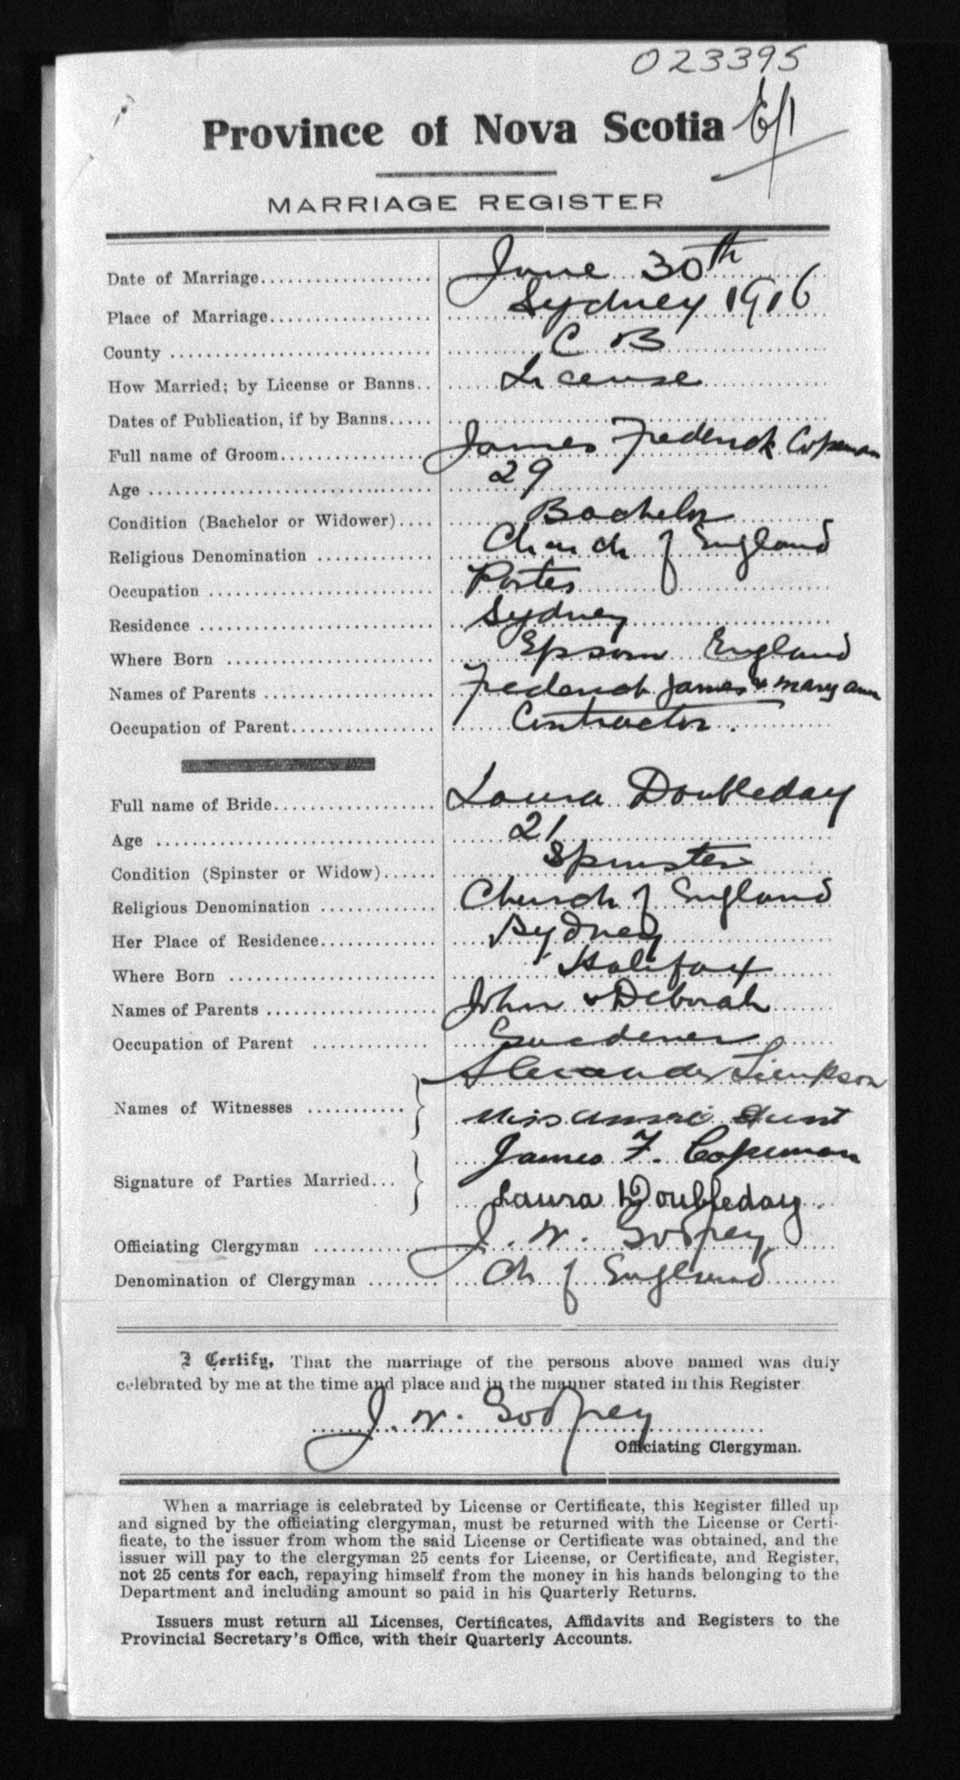 023395
Province of Nova Scotia
MARRIAGE REGISTER
Date of Marriage.................... June 30th
Place of Marriage.................. Sydney 1916
County ............................. C B
How Married; by License or Banns.. License
Dates of Publication, if by Banns.....
Full name of Groom................. James Frederick Copeman
Age ................................ 29
Condition (Bachelor or Widower).... Bachelor
Religious Denomination ............. Church of England
Occupation ......................... Porter
Residence .......................... Sydney
Where Born ......................... Epsom England
Names of Parents ................... Frederick James & Mary Ann
Occupation of Parent................ Contractor.
Full name of Bride.................. Laura Doubleday
Age ................................ 21
Condition (Spinster or Widow)...... Spinster
Religious Denomination ............. Church of England
Her Place of Residence.............. Sydney
Where Born ......................... Halifax
Names of Parents ................... John & Deborah
Occupation of Parent ............... Gardener
Names of Witnesses ........... Alexander Simpson
Miss Annie Hunt
Signature of Parties Married... James F. Copeman
Laura Doubleday.
Officiating Clergyman ............. J. W. Godfrey
Denomination of Clergyman ........ Ch of England
I Certify, That the marriage of the persons above named was duly
celebrated by me at the time and place and in the manner stated in this Register
J. W. Godfrey
Officiating Clergyman.
When a marriage is celebrated by License or Certificate, this Register filled up
and signed by the officiating clergyman, must be returned with the License or Certi-
ficate, to the issuer from whom the said License or Certificate was obtained, and the
issuer will pay to the clergyman 25 cents for License, or Certificate, and Register,
not 25 cents for each, repaying himself from the money in his hands belonging to the
Department and including amount so paid in his Quarterly Returns.
Issuers must return all Licenses, Certificates, Affidavits and Registers to the
Provincial Secretary's Office, with their Quarterly Accounts.